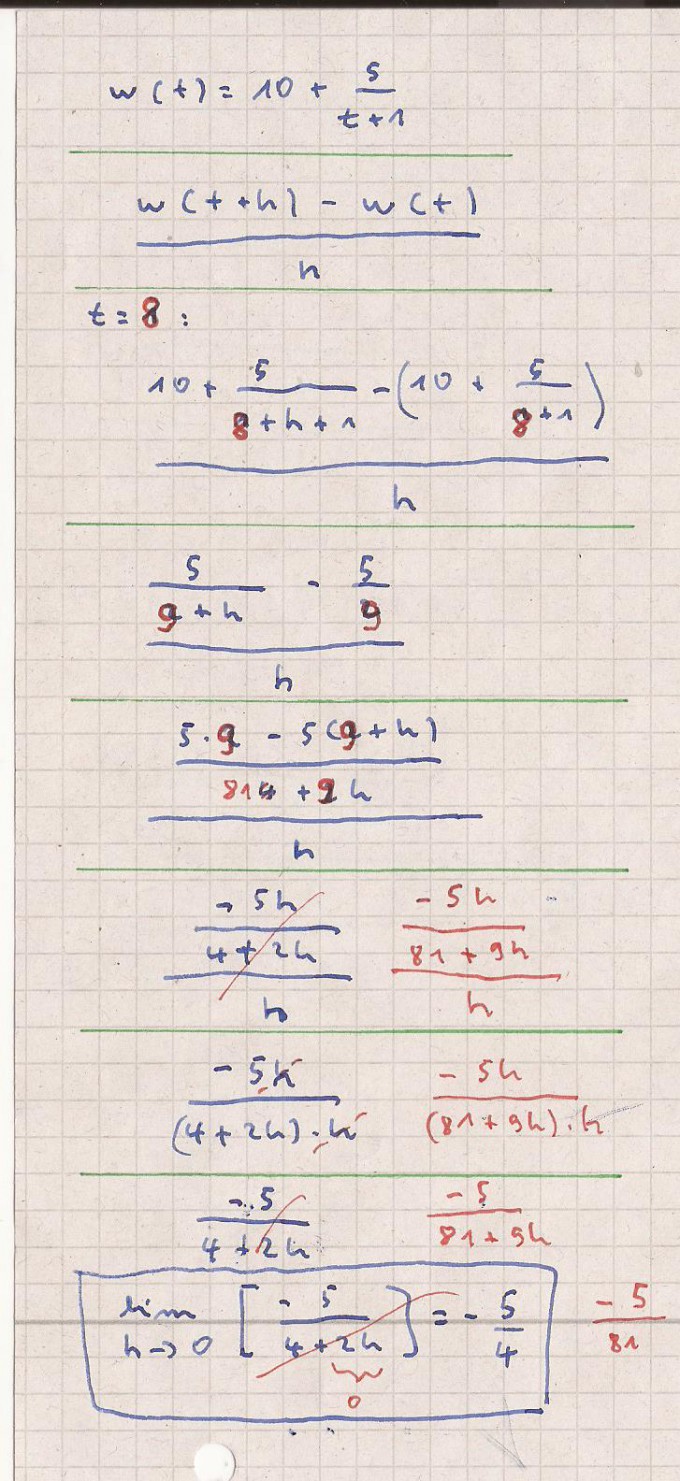 w(t) = 10 + 5/(t+1)
(w(t+h) - w(t))/h
t = 8 :
(10 + 5/(8+h+1) - (10 + 5/(8+1)))/h
(5/(9+h) - 5/9)/h
((5·9 - 5(9+h))/(81 + 9h))/h
(-5h/(4+2h))/h (-5h/(81+9h))/h
-5h/((4+2h)·h) -5h/((81+9h)·h)
-5/(4+2h) -5/(81+9h)
lim h→0 [-5/(4+2h)] = -5/4 -5/81
0